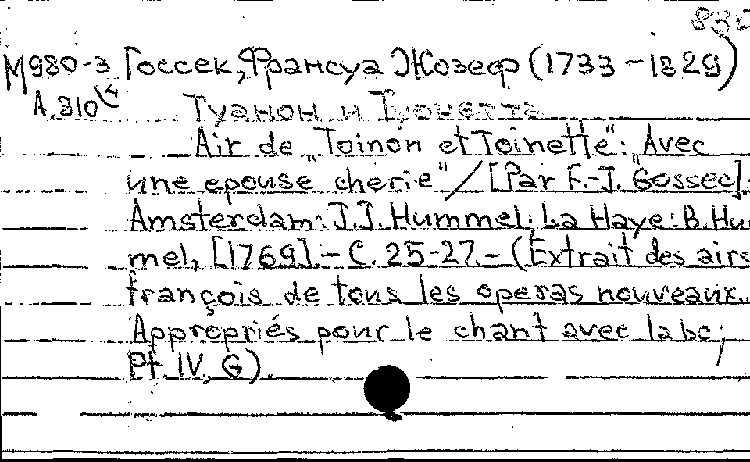 М980-3 Госсек, Франсуа Жозеф (1733-1829)
А.310
Туанон и Туанетта
Air de „Toinon et Toinette“: „Avec
une epouse cherie“ / [Par F.-J. Gossec].
Amsterdam: J.J. Hummel; La Haye: B. Hu
mel, [1769]. - С. 25-27. - (Extrait des airs
françois de tous les operas nouveaux.
Appropriés pour le chant avec la bc;
Pt. IV, G).